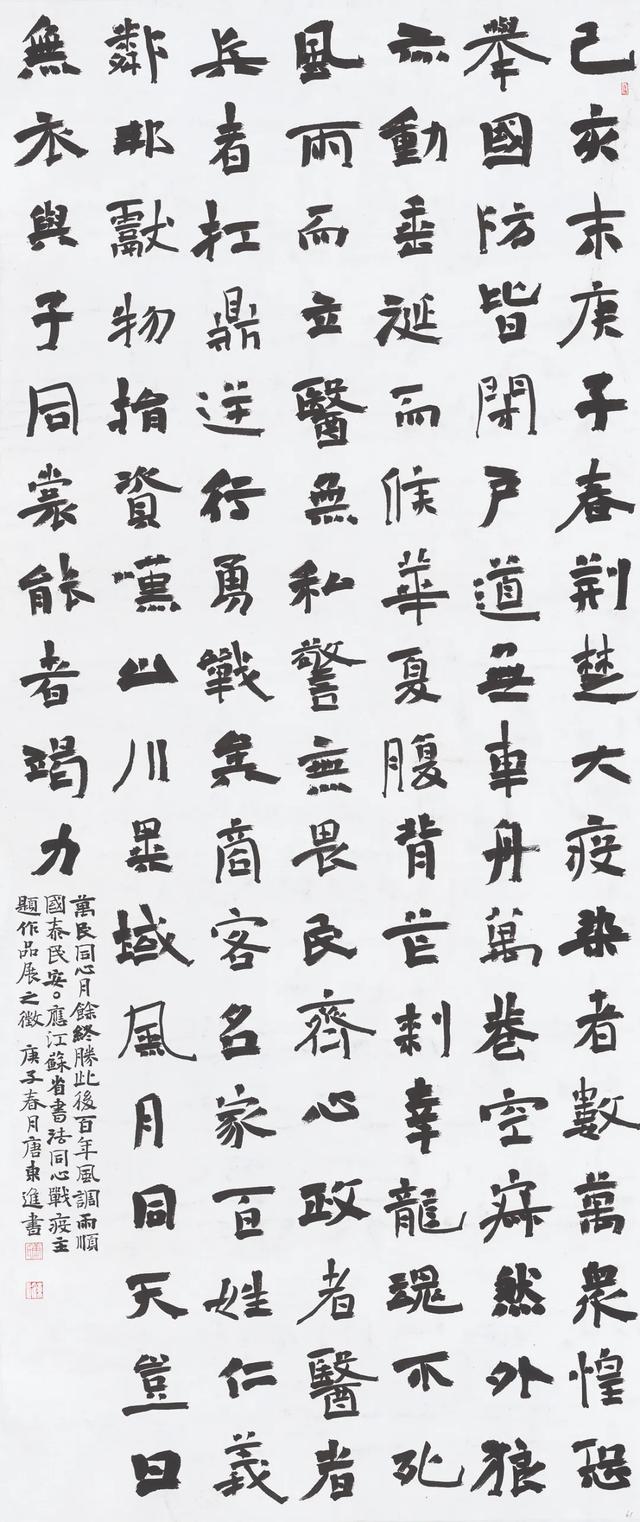 己亥末庚子春荆楚大疫染者數萬衆惶恐
舉國防皆閉戶道無車舟萬巷空寂然外狼
亦動垂涎而候華夏腹背芒刺幸龍魂不死
風雨而立醫無私警無畏民齊心政者醫者
兵者扛鼎逆行勇戰矣商客名家百姓仁義
鄰邦獻物捐資嘆山川異域風月同天豈曰
無衣與子同裳能者竭力
萬民同心月餘終勝此後百年風調雨順
國泰民安。應江蘇省書法同心戰疫主
題作品展之徵 庚子春月唐東進書